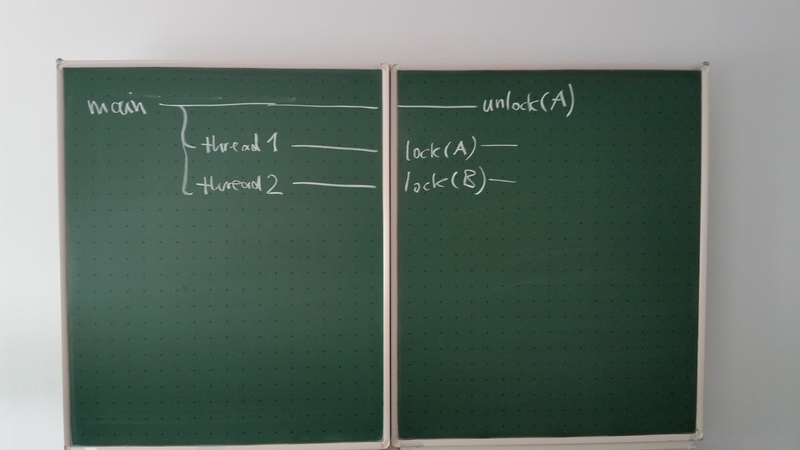 main unlock(A)
thread 1 lock(A)
thread 2 lock(B)